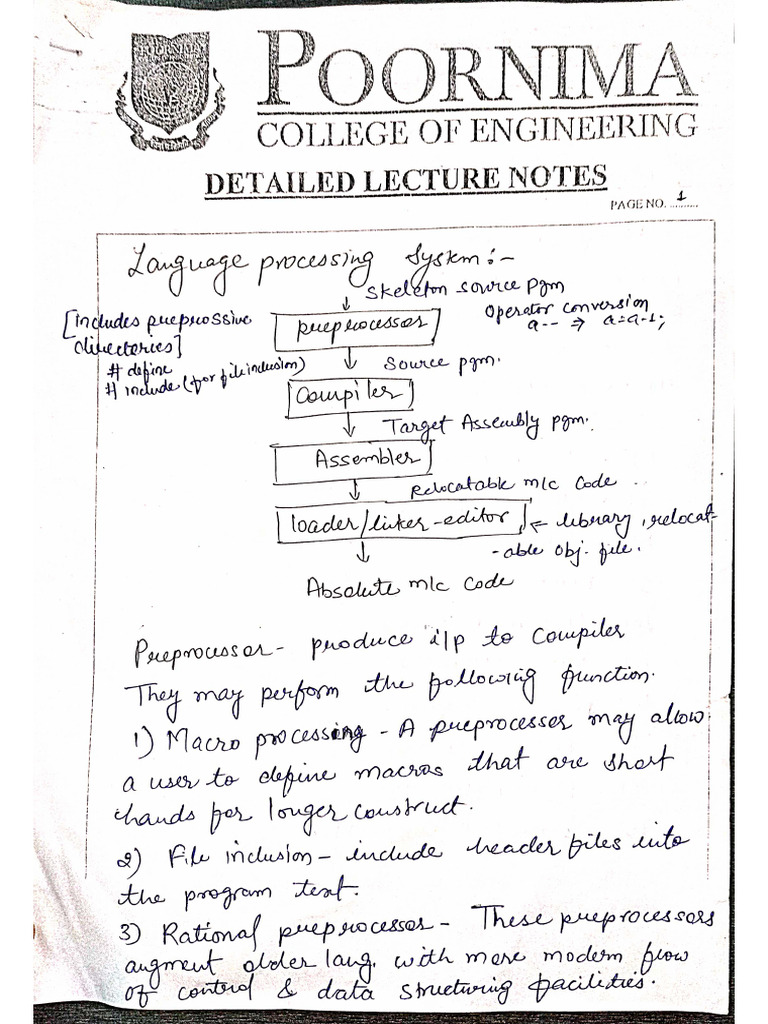 POORNIMA
COLLEGE OF ENGINEERING
DETAILED LECTURE NOTES
PAGE NO. 1
Language processing System:-
↓ Skeleton source pgm
[includes preprossive
directories]
# define
# include (for file inclusion)
preprocessor
Operator conversion
a-- ⇒ a=a-1;
↓ Source pgm.
Compiler
↓ Target Assembly pgm.
Assembler
↓ Relocatable m/c code.
loader/linker-editor ← library, relocat-
-able obj. file.
↓
Absolute m/c code
Preprocessor - produce i/p to compiler
They may perform the following function.
1) Macro processing - A preprocesser may allow
a user to define macros that are short
hands for longer construct.
2) File inclusion - include header files into
the program text.
3) Rational preprocessor - These preprocessors
augment older lang. with more modern flow
of control & data structuring facilities.